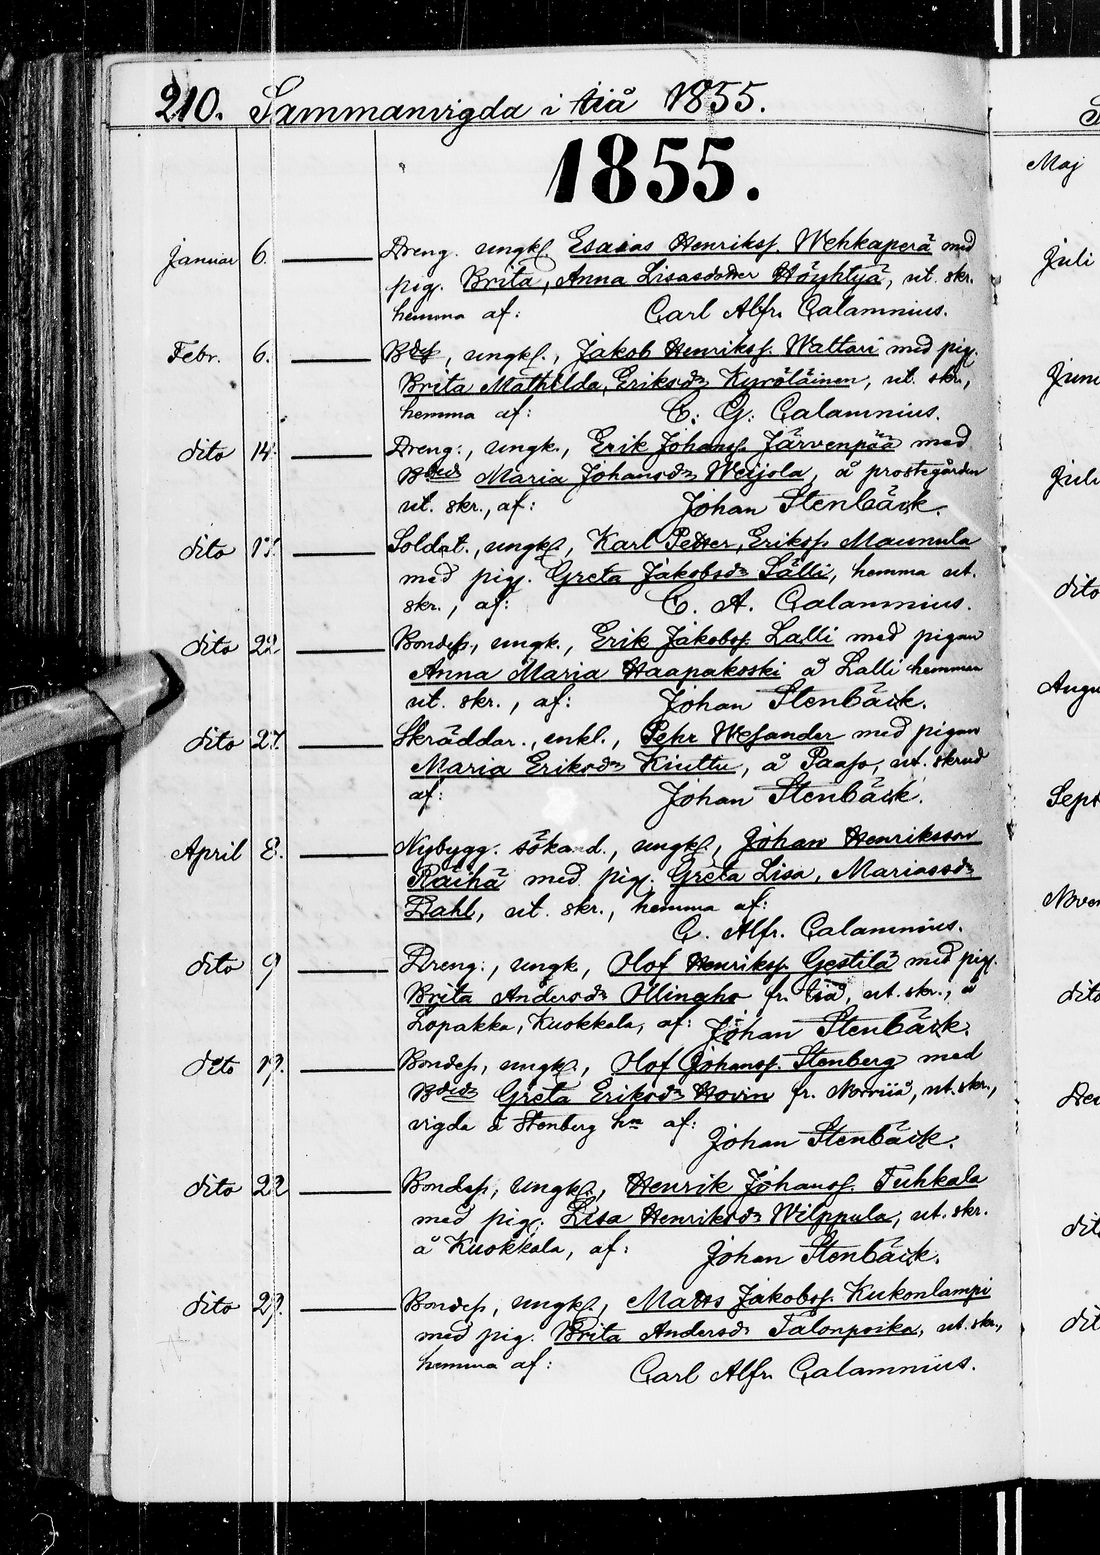 210. Sammanvigda i Uiå 1855.
1855.
Januar 6. Dreng. ungkl. Esaias Henrikss. Wehkaperä med
pig. Brita, Anna Lisasdotter Höyhtyä, ut. skr.
hemma af: Carl Alfr. Calamnius.
Febr. 6. Bds, ungkl., Jakob Henrikss. Wattari med pig.
Brita Mathilda, Eriksdr Kyröläinen, ut. skr.,
hemma af: C. G. Calamnius.
dito 14. Dreng:, ungk., Erik Johanss. Järvenpää med
Bded Maria Johansdr Weijola, å prostegården
ut. skr., af: Johan Stenbäck.
dito 17. Soldat., ungkl., Karl Petter, Erikss. Maunula
med pig. Greta Jakobsdr Sälli, hemma ut.
skr., af: C. A. Calamnius.
dito 22 Bondess, ungk., Erik Jakobss. Lalli med pigan
Anna Maria Haapakoski å Lalli hemman
ut. skr., af: Johan Stenbäck.
dito 27. Skräddar., enkl., Pehr Wesander med pigan
Maria Eriksdr Kiuttu, å Paaso, ut. skrud
af: Johan Stenbäck.
April 8. Nybygg. sökand., ungkl., Johan Henriksson
Räihä med pig. Greta Lisa, Mariassdr
Dahl, ut. skr., hemma af:
C. Alfr. Calamnius.
dito 9 Dreng., ungk, Olof Henrikss. Gestilä med pig.
Brita Andersdr Ollinaho fr. Uiå, ut. skr., å
Lopakka, Kuokkala, af: Johan Stenbäck.
dito 19. Bondess, ungkl., Olof Johanss. Stenberg med
Bdeds Greta Eriksdr Hovin fr. Norviiå, ut. skr.,
vigda å Stenberg hn af: Johan Stenbäck.
dito 22 Bondess, ungkl., Henrik Johanss. Tuhkala
med pig. Lisa Henriksdr Wilppula, ut. skr.
å Kuokkala, af: Johan Stenbäck.
dito 29. Bondess, ungkl., Matts Jakobss. Kukonlampi
med pig. Brita Andersdr Talonpoika, ut. skr.,
hemma af: Carl Alfr. Calamnius.
Maj
Juli
Juni
Juli
dito
Augu
Sept
Noven
dito
Dec
dit
dit